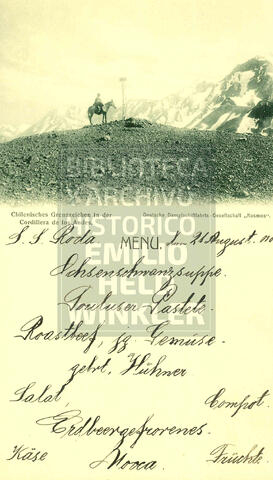 Chilenisches Grenzzeichen in der
Cordillera de los Andes.
Deutsche Dampfschiffahrts-Gesellschaft „Kosmos“.
BIBLIOTECA
Y ARCHIVO
HISTORICO
EMILIO
HELD
WINKLER
S. S. Roda
MENU.
den 21 August
Ochsenschwanzsuppe.
Touluser Pastete
Roastbeef, jg Gemüse.
gebrt. Hühner
Salat, Compot.
Erdbeergefrorenes.
Käse Mocca. Früchte.